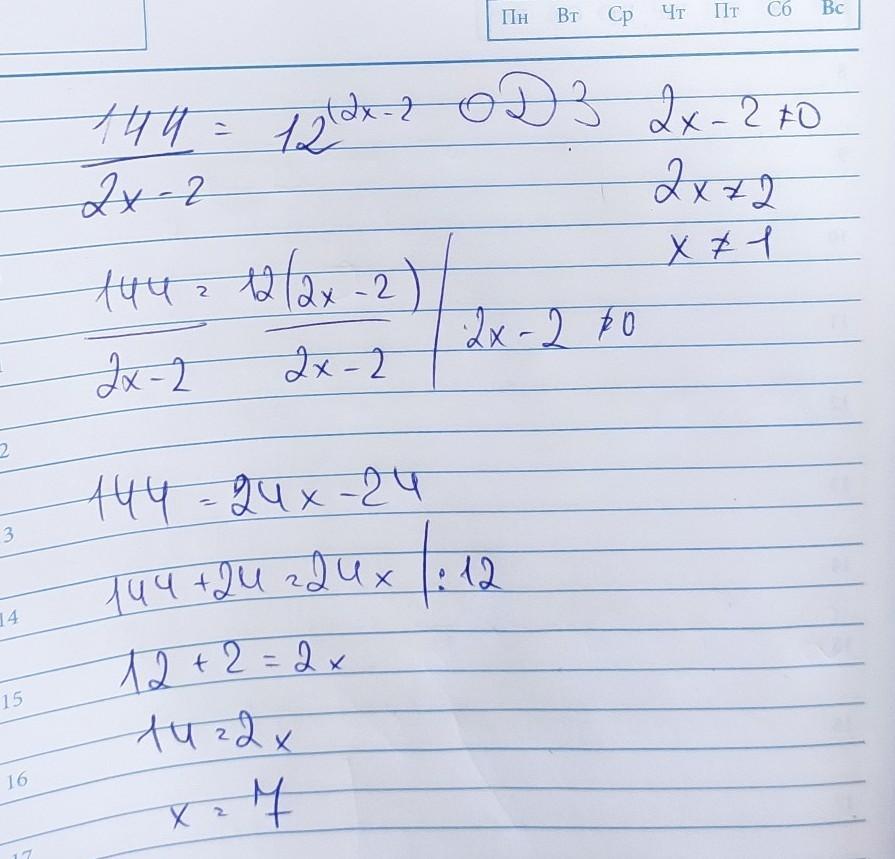 Пн Вт Ср Чт Пт Сб Вс
144 = 12^(2x-2 ОДЗ 2x-2≠0
2x-2
2x≠2
x≠1
144 = 12(2x-2)
2x-2 2x-2 | 2x-2 ≠0
2
144 = 24x-24
13
144+24=24x |:12
14
12+2=2x
15
14=2x
16
x=7
17